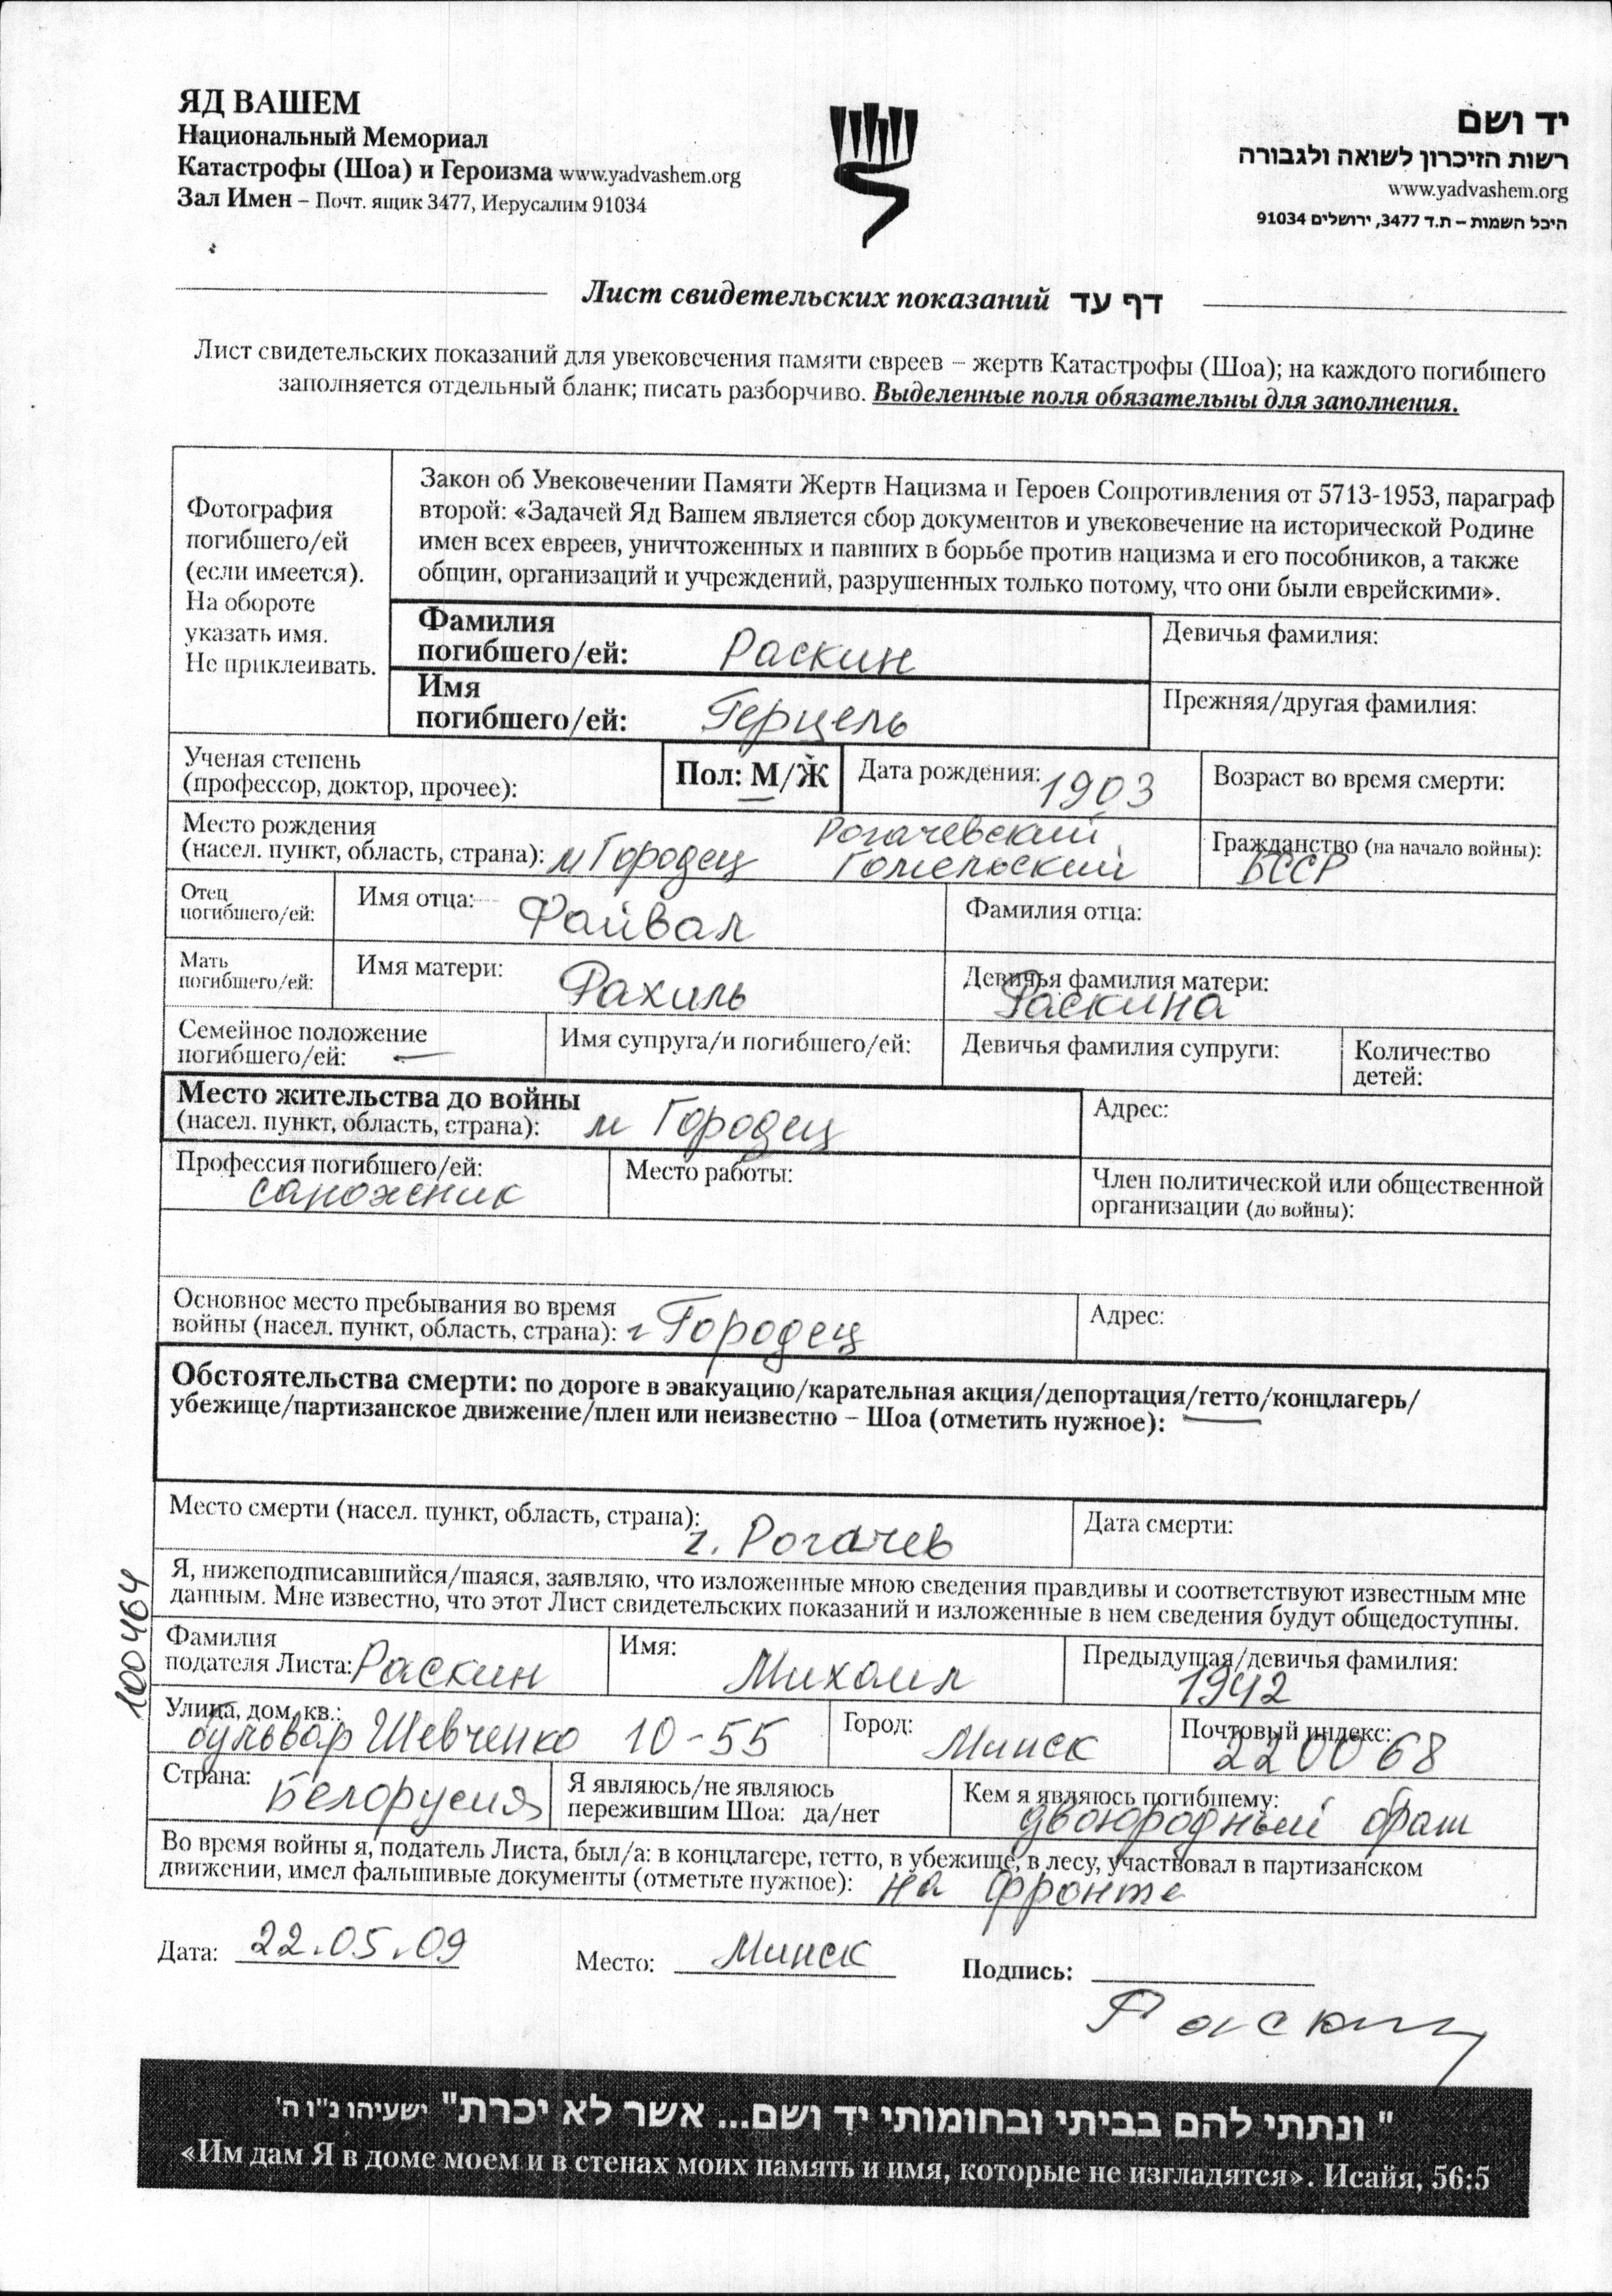 ЯД ВАШЕМ
Национальный Мемориал
Катастрофы (Шоа) и Героизма www.yadvashem.org
Зал Имен – Почт. ящик 3477, Иерусалим 91034
יד ושם
רשות הזיכרון לשואה ולגבורה
www.yadvashem.org
היכל השמות – ת.ד 3477, ירושלים 91034
Лист свидетельских показаний דף עד
Лист свидетельских показаний для увековечения памяти евреев – жертв Катастрофы (Шоа); на каждого погибшего
заполняется отдельный бланк; писать разборчиво. Выделенные поля обязательны для заполнения.
Фотография
погибшего/ей
(если имеется).
На обороте
указать имя.
Не приклеивать.
Закон об Увековечении Памяти Жертв Нацизма и Героев Сопротивления от 5713-1953, параграф
второй: «Задачей Яд Вашем является сбор документов и увековечение на исторической Родине
имен всех евреев, уничтоженных и павших в борьбе против нацизма и его пособников, а также
общин, организаций и учреждений, разрушенных только потому, что они были еврейскими».
Фамилия
погибшего/ей: Раскин
Девичья фамилия:
Имя
погибшего/ей: Герцель
Прежняя/другая фамилия:
Ученая степень
(профессор, доктор, прочее):
Пол: М/Ж
Дата рождения: 1903
Возраст во время смерти:
Место рождения
(насел. пункт, область, страна): м Городец
Рогачевский
Гомельский
Гражданство (на начало войны):
БССР
Отец
погибшего/ей:
Имя отца: Файвал
Фамилия отца:
Мать
погибшего/ей:
Имя матери: Рахиль
Девичья фамилия матери:
Раскина
Семейное положение
погибшего/ей: —
Имя супруга/и погибшего/ей:
Девичья фамилия супруги:
Количество
детей:
Место жительства до войны
(насел. пункт, область, страна): м Городец
Адрес:
Профессия погибшего/ей:
сапожник
Место работы:
Член политической или общественной
организации (до войны):
Основное место пребывания во время
войны (насел. пункт, область, страна): г Городец
Адрес:
Обстоятельства смерти: по дороге в эвакуацию/карательная акция/депортация/гетто/концлагерь/
убежище/партизанское движение/плен или неизвестно – Шоа (отметить нужное):
Место смерти (насел. пункт, область, страна):
г. Рогачев
Дата смерти:
Я, нижеподписавшийся/шаяся, заявляю, что изложенные мною сведения правдивы и соответствуют известным мне
данным. Мне известно, что этот Лист свидетельских показаний и изложенные в нем сведения будут общедоступны.
100464
Фамилия
подателя Листа: Раскин
Имя:
Михаил
Предыдущая/девичья фамилия:
1942
Улица, дом, кв.:
бульвар Шевченко 10-55
Город:
Минск
Почтовый индекс:
220068
Страна: Белорусия
Я являюсь/не являюсь
пережившим Шоа: да/нет
Кем я являюсь погибшему:
двоюродный брат
Во время войны я, податель Листа, был/а: в концлагере, гетто, в убежище, в лесу, участвовал в партизанском
движении, имел фальшивые документы (отметьте нужное): на фронте
Дата: 22.05.09
Место: Минск
Подпись:
Раскин
" ונתתי להם בביתי ובחומותי יד ושם... אשר לא יכרת" ישעיהו נ"ו ה'
«Им дам Я в доме моем и в стенах моих память и имя, которые не изгладятся». Исайя, 56:5